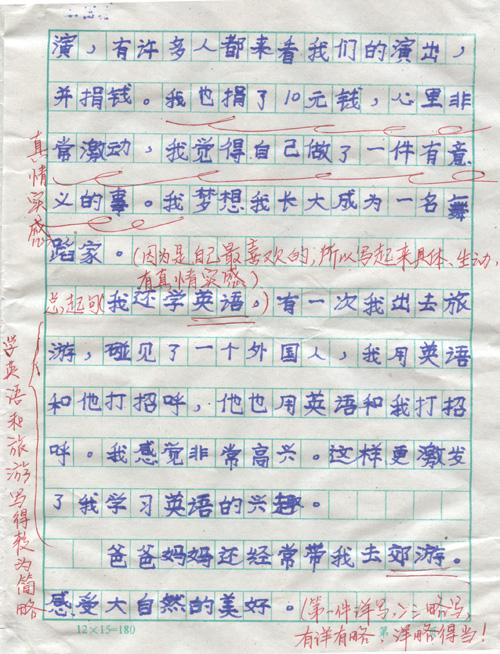 演，有许多人都来看我们的演出，
并捐钱。我也捐了10元钱，心里非
常激动，我觉得自己做了一件有意
义的事。我梦想我长大成为一名舞
蹈家。(因为是自己最喜欢的,所以写起来具体、生动,
有真情实感)
总起句 我还学英语。) 有一次我出去旅
游，碰见了一个外国人，我用英语
和他打招呼，他也用英语和我打招
呼。我感觉非常高兴。这样更激发
了我学习英语的兴趣。
爸爸妈妈还经常带我去郊游。
感受大自然的美好。(第一件详写,二三略写,
有详有略，详略得当!)
真情实感
学英语和旅游写得较为简略
12×15=180
第